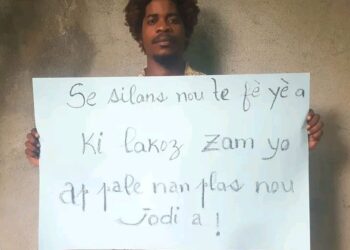 Se silans nou te fè yè a
ki lakoz zam yo
ap pale nan plas nou
Jodi a !